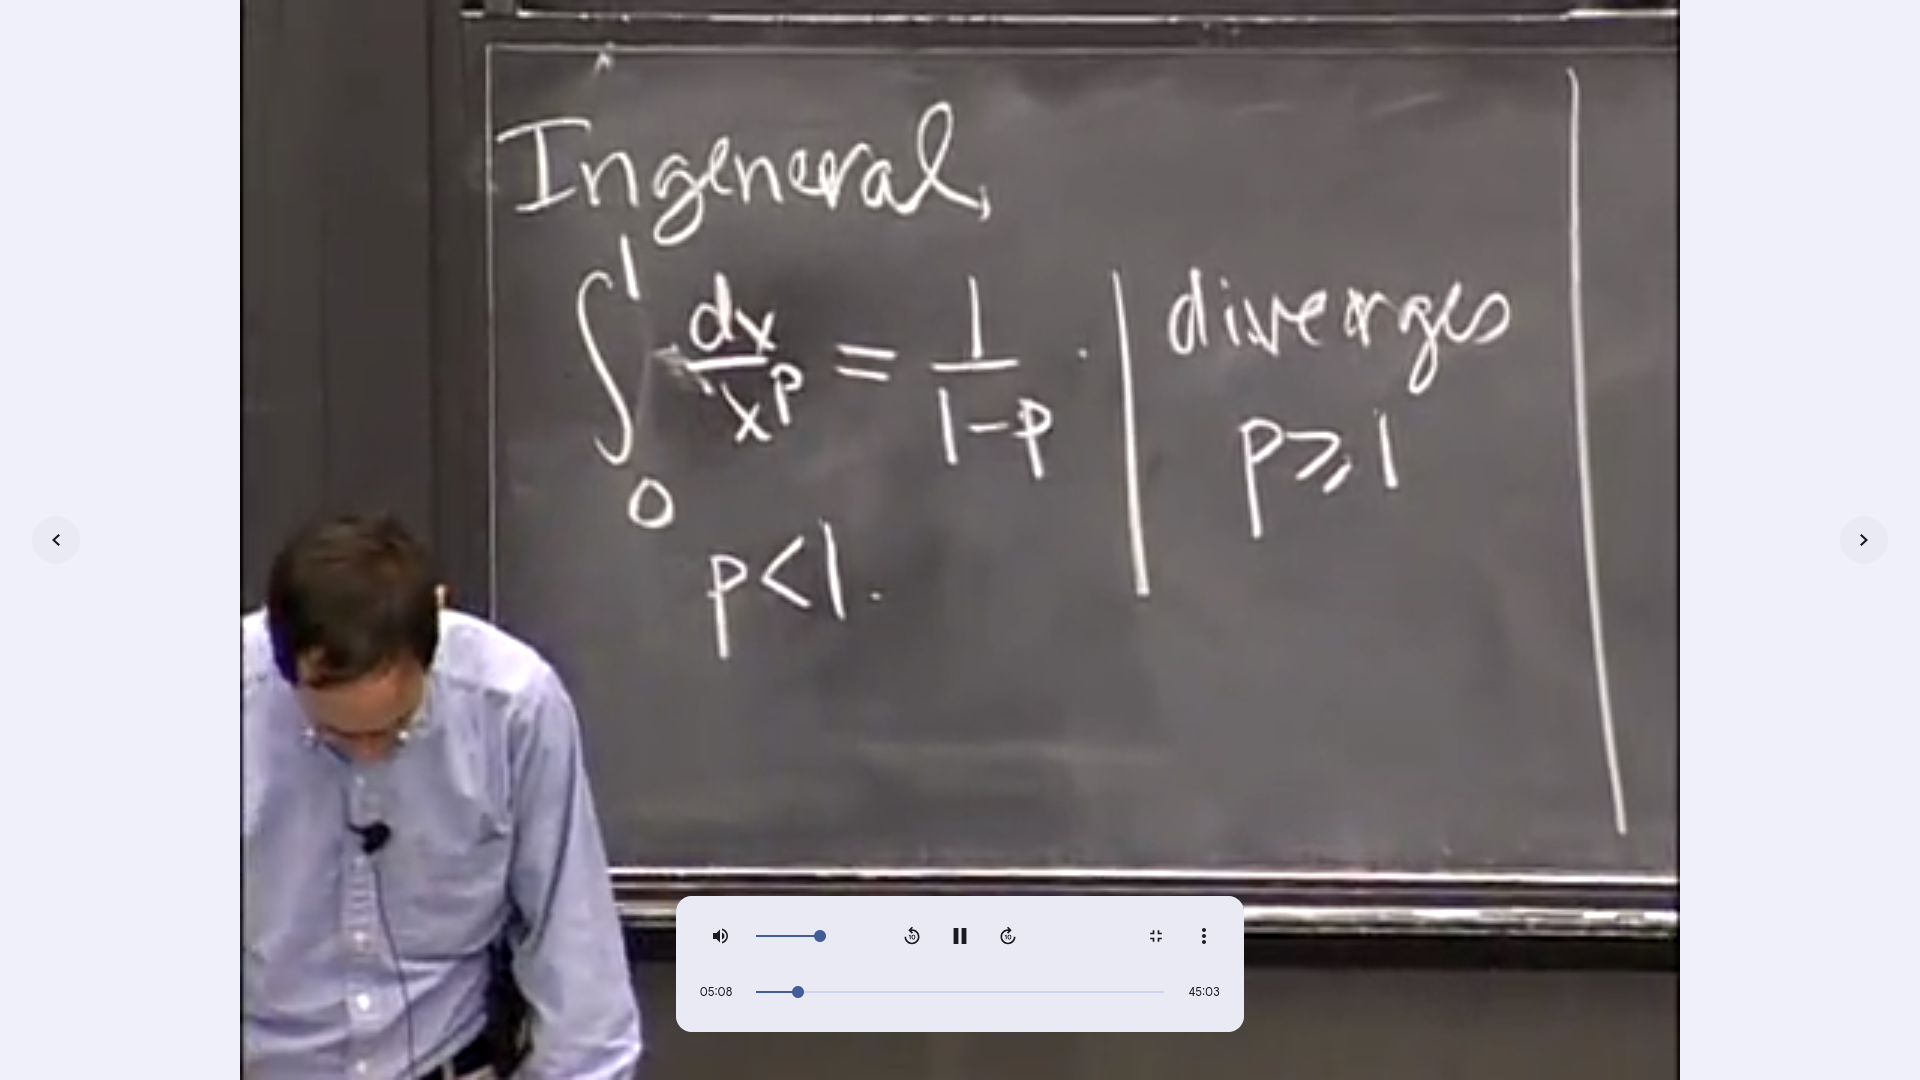 In general,
∫₀¹ dx/xᵖ = 1/(1-p)
p<1.
diverges
p⩾1
10
10
05:08
45:03